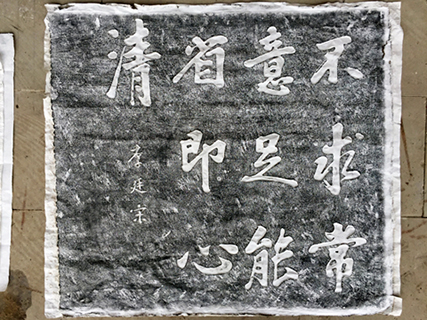 不求常
意足能
省即心
清
李廷宗